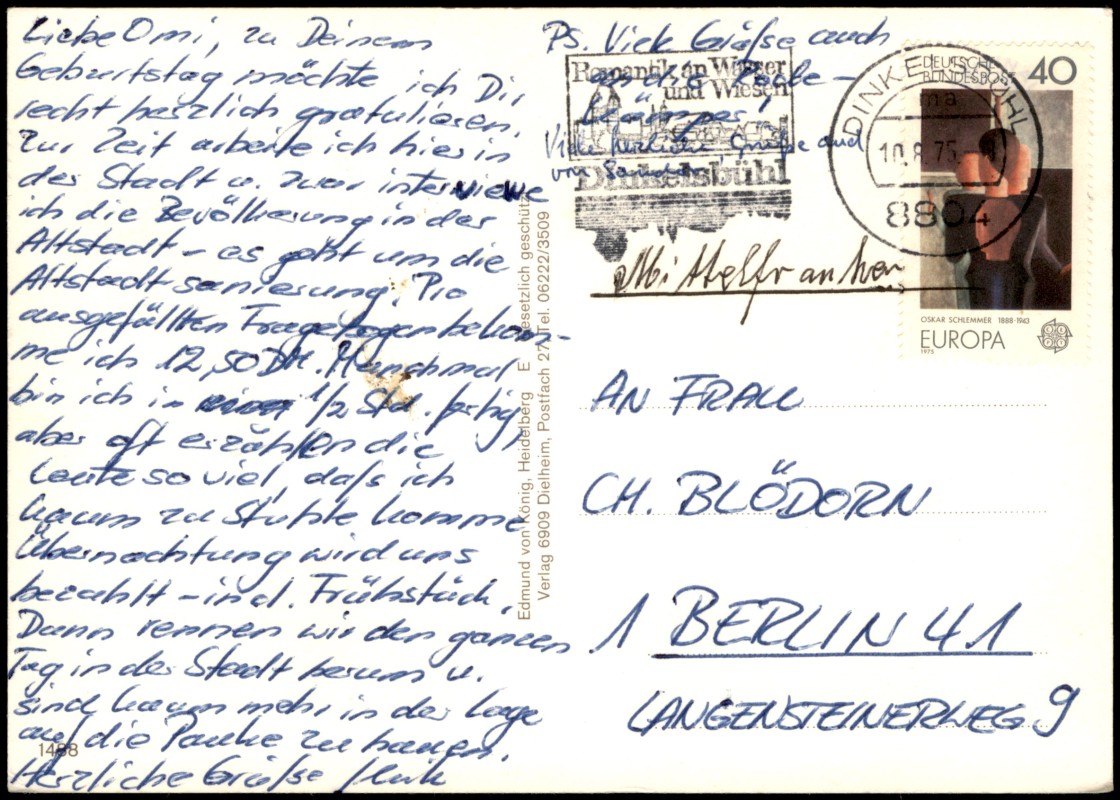 Liebe Omi, zu Deinem
Geburtstag möchte ich Dir
recht herzlich gratulieren.
Zur Zeit arbeite ich hier in
der Stadt u. zwar interviewe
ich die Bevölkerung in der
Altstadt – es geht um die
Altstadtsanierung. Pro
ausgefüllten Fragebogen bekom-
me ich 12,50 DM. Manchmal
bin ich in 1/2 Std. fertig,
aber oft erzählen die
Leute so viel, daß ich
kaum zu Stuhle komme
Übernachtung wird uns
bezahlt – incl. Frühstück.
Dann rennen wir den ganzen
Tag in der Stadt herum u.
sind kaum mehr in der Lage
auf die Pauke zu hauen.
Herzliche Grüße
1488
Edmund von König, Heidelberg E esetzlich geschützt
Verlag 6909 Dielheim, Postfach 27 Tel. 06222/3509
Ps. Viele Grüße auch
Viele herzliche Grüße auch
von
Romantik an Wasser
und Wiesen
Dinkelsbühl
DINKELSBÜHL
ma
10.8.75
8804
DEUTSCHE
BUNDESPOST
40
OSKAR SCHLEMMER 1888-1943
EUROPA
1975
Mittelfranken
AN FRAU
CH. BLÖDORN
1 BERLIN 41
LANGENSTEINERWEG 9